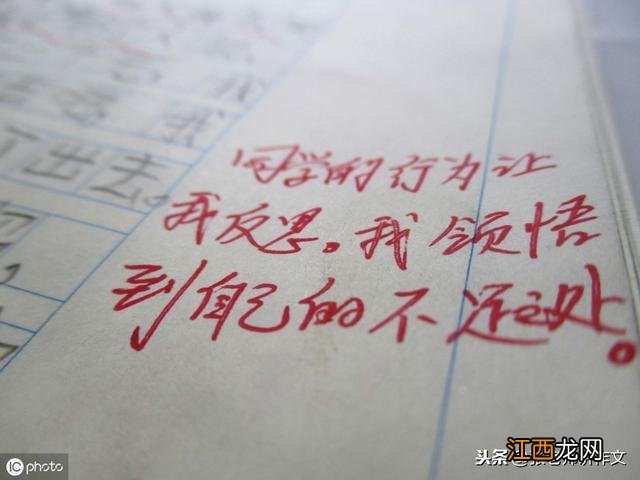 同学的行为让
我反思。我领悟
到自己的不足之处。
出去。
photo
江西龙网
头条
作文